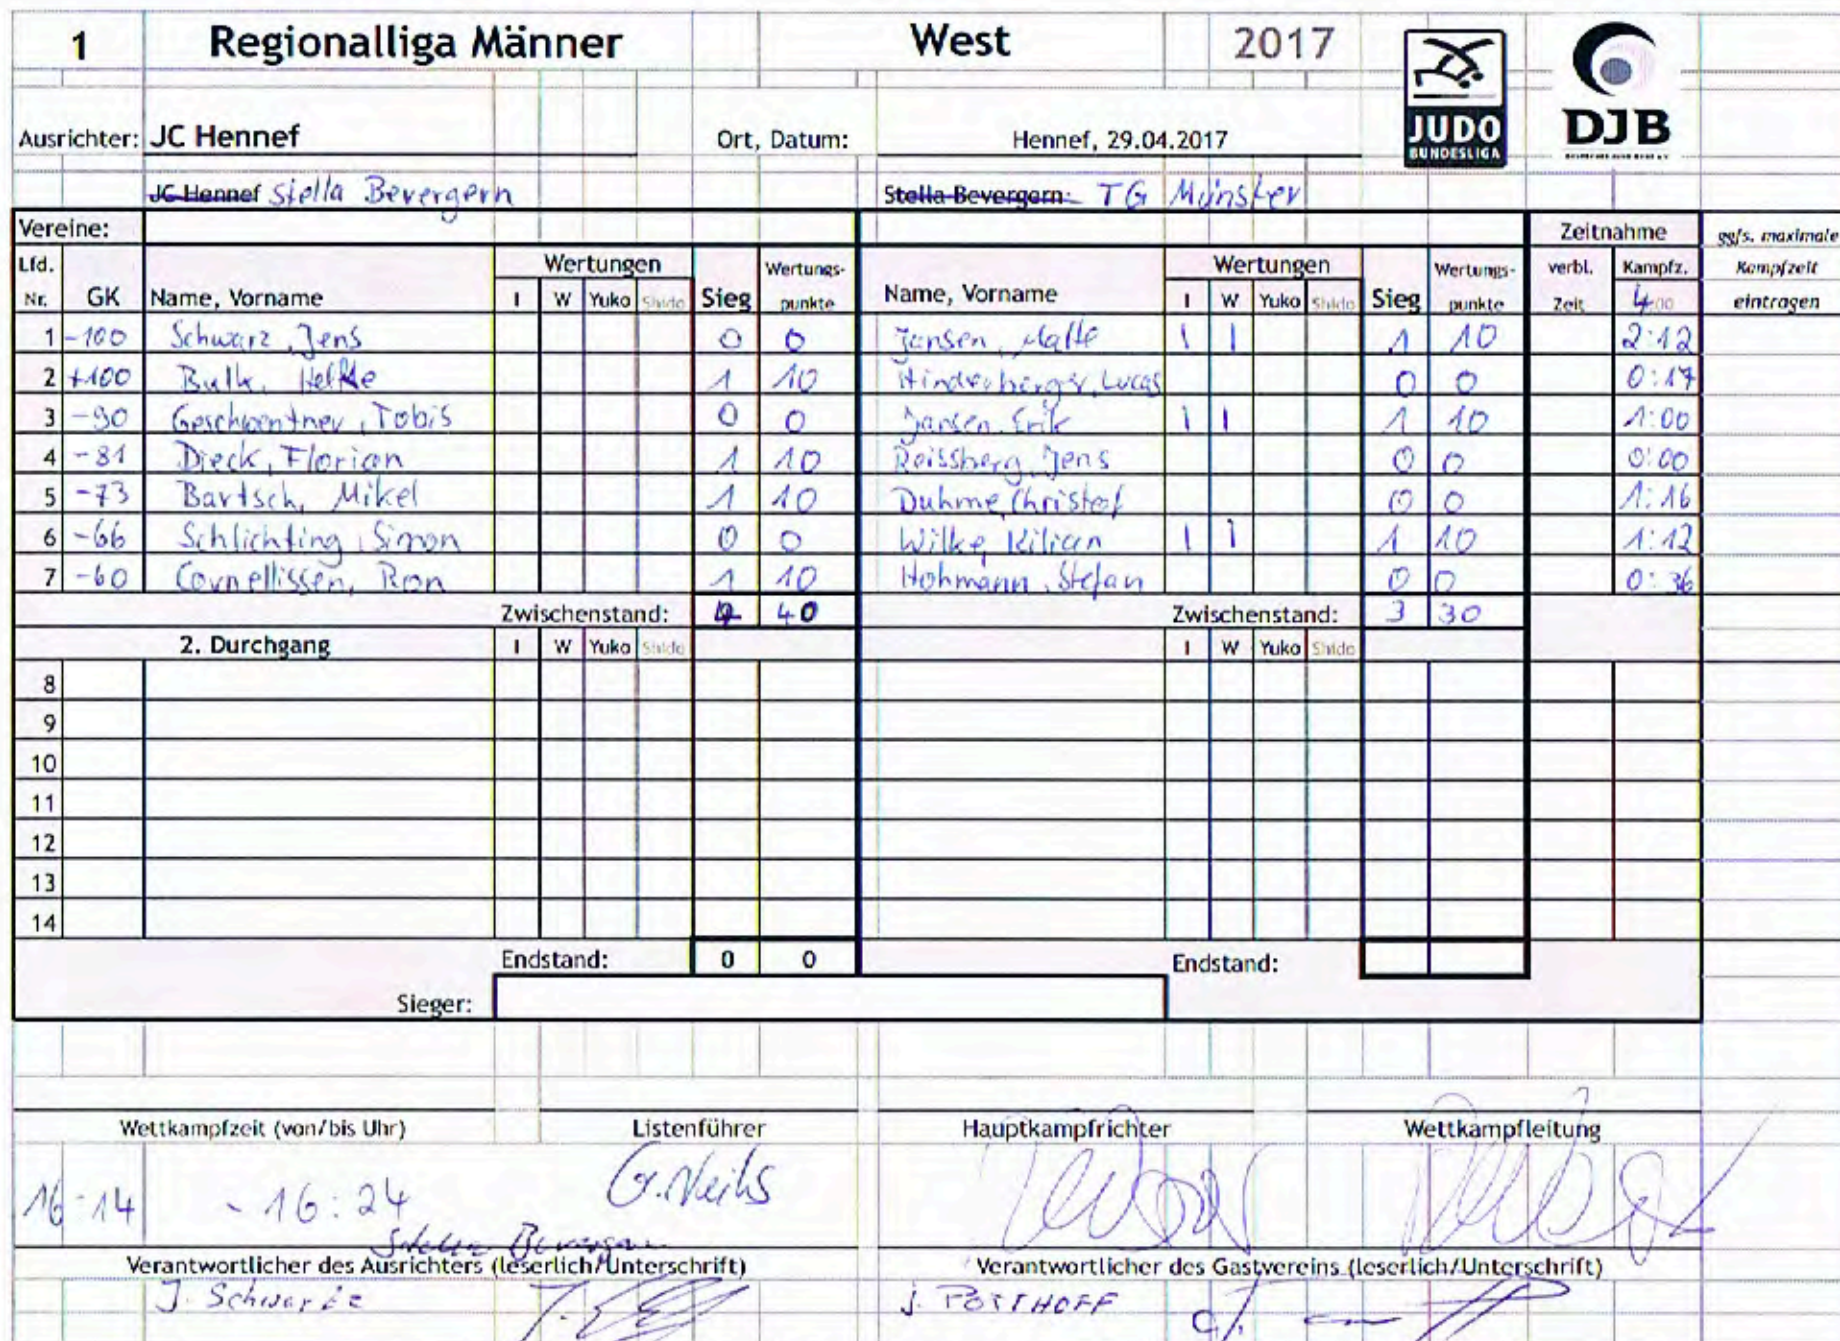 1 Regionalliga Männer West 2017
JUDO BUNDESLIGA
DJB
Ausrichter: JC Hennef Ort, Datum: Hennef, 29.04.2017
JC Hennef Stella Bevergern Stella Bevergern TG Münster
Vereine: Zeitnahme ggfs. maximale
Lfd. Wertungen Wertungs- Wertungen Wertungs- verbl. Kampfz. Kampfzeit
Nr. GK Name, Vorname I W Yuko Shido Sieg punkte Name, Vorname I W Yuko Shido Sieg punkte Zeit 4:00 eintragen
1 -100 Schwarz, Jens 0 0 Jansen, Malte I I 1 10 2:12
2 +100 Bulk, 1 10 Hinderberger, Lucas 0 0 0:17
3 -90 Geschwentner, Tobis 0 0 Jansen, Erik I I 1 10 1:00
4 -81 Dieck, Florian 1 10 Reissberg, Jens 0 0 0:00
5 -73 Bartsch, Mikel 1 10 Duhme, Christof 0 0 1:16
6 -66 Schlichting, Simon 0 0 Wilke, Kilian I I 1 10 1:12
7 -60 Cornellissen, Ron 1 10 Hohmann, Stefan 0 0 0:36
Zwischenstand: 4 40 Zwischenstand: 3 30
2. Durchgang I W Yuko Shido I W Yuko Shido
8
9
10
11
12
13
14
Endstand: 0 0 Endstand:
Sieger:
Wettkampfzeit (von/bis Uhr) Listenführer Hauptkampfrichter Wettkampfleitung
16:14 - 16:24
Stella Bevergern
Verantwortlicher des Ausrichters (leserlich/Unterschrift) Verantwortlicher des Gastvereins (leserlich/Unterschrift)
J. Schwartz J. POTTHOFF